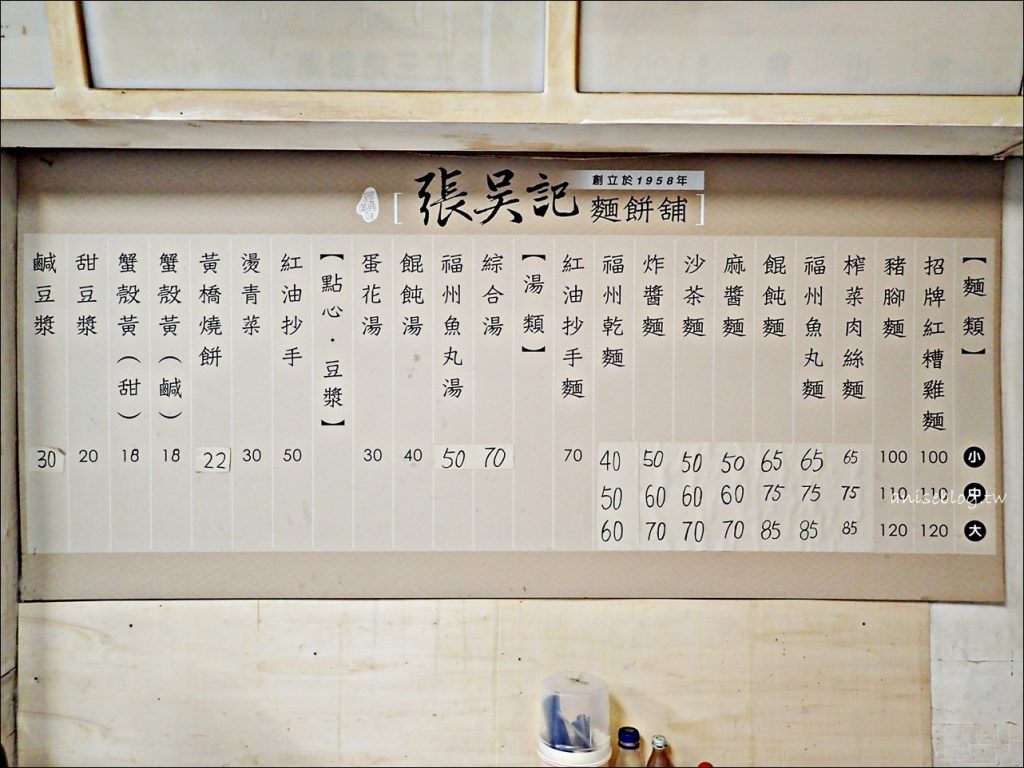 張吳記
創立於1958年
[麵餅舖]
【麵類】 小 中 大
招牌紅糟雞麵 100 110 120
豬腳麵 100 110 120
榨菜肉絲麵 65 75 85
福州魚丸麵 65 75 85
餛飩麵 65 75 85
麻醬麵 50 60 70
沙茶麵 50 60 70
炸醬麵 50 60 70
福州乾麵 40 50 60
紅油抄手麵 70
【湯類】
綜合湯 70
福州魚丸湯 50
餛飩湯 40
蛋花湯 30
【點心·豆漿】
紅油抄手 50
燙青菜 30
黃橋燒餅 22
蟹殼黃(鹹) 18
蟹殼黃(甜) 18
甜豆漿 20
鹹豆漿 30